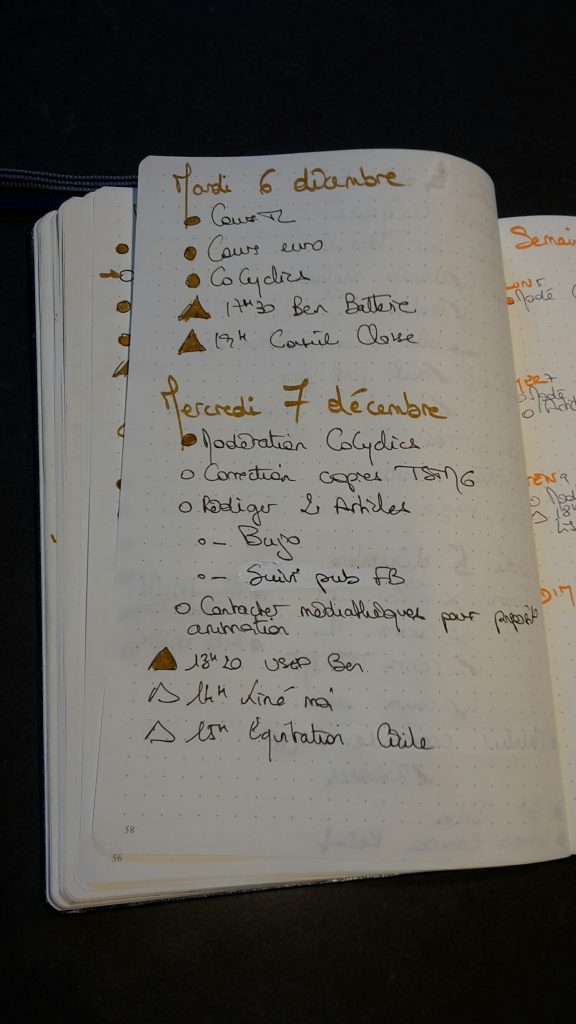 Mardi 6 décembre
Cours TL
Cours euro
CoCyclics
17H30 Ben Batterie
19H Conseil Classe
Mercredi 7 décembre
Modération CoCyclics
Correction copies TSTMG
Rédiger 2 Articles
- Bujo
- Suivi pub FB
Contacter médiathèques pour
animation
13H20 USEP Ben
14H Ciné moi
15H Équitation Cécile
58
56
Semai
Modé